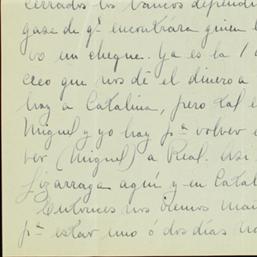 cerrados los bancos dependi
gase de qe encontrara quien l
vo un cheque. Ya es la 1 a
creo que nos dé el dinero a
hoy a Catalina, pero tal e
Miguel y yo hoy pa volver e
ver (Miguel) a Real. Asi
Lizarraga aquí y en Catal
Entonces nos vemos mañ
pa estar uno o dos días